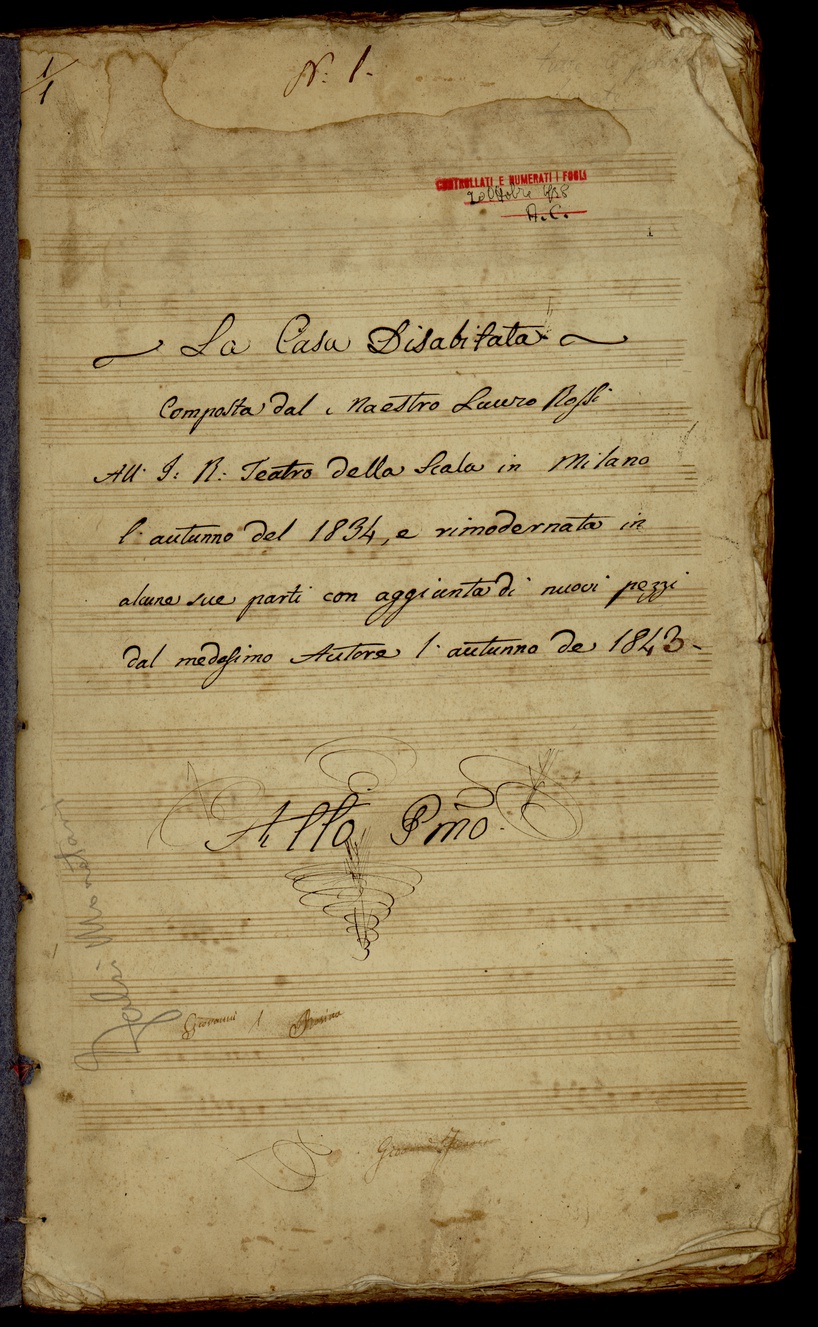 1/1
N: 1.
CONTROLLATI E NUMERATI I FOGLI
A.C.
1
La Casa Disabitata
Composta dal Maestro Lauro Rossi
All' I: R: Teatro della Scala in Milano
l'autunno del 1834, e rimodernata in
alcune sue parti con aggiunta di nuovi pezzi
dal medesimo Autore l'autunno de 1843-
Atto Pmo
Giovanni